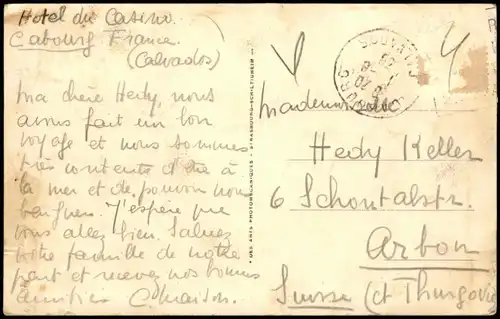 Hotel du Casino
Cabourg France
(Calvados)
Ma chère Hedy, nous
avons fait un bon
voyage et nous sommes
très contents d'être à
la mer et de pouvoir nous
baigner. J'espère que
vous allez bien. Saluez
votre famille de notre
part et recevez nos bonnes
amitiés C. Maison.
STRASBOURG-SCHILTIGHEIM
CALVADOS
Mademoiselle
Hedy Keller
6 Schöntalstr.
Arbon
Suisse (ct Thurgovie)